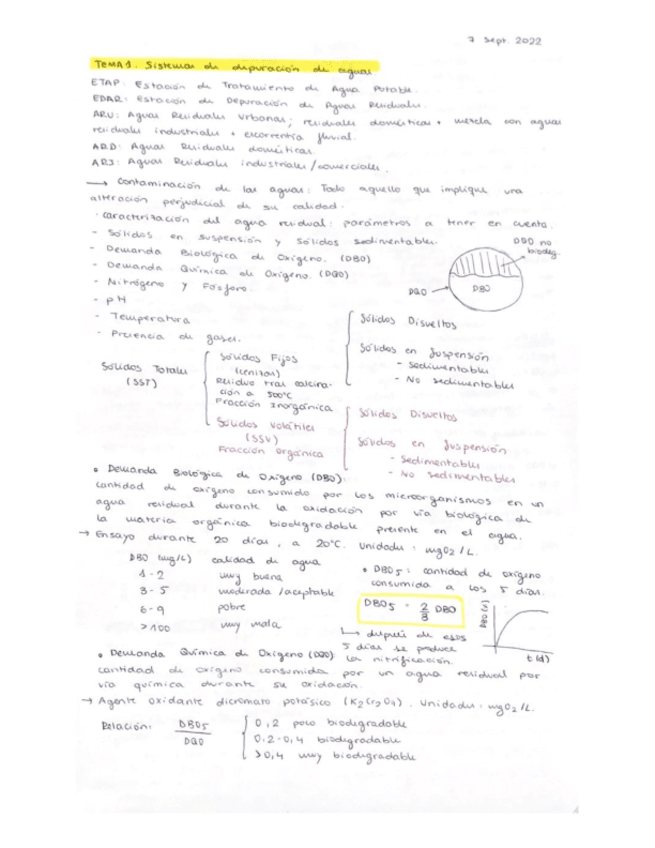 7 Sept. 2022
TEMA 1: Sistemas de depuración de aguas
ETAP: Estación de Tratamiento de Agua Potable.
EDAR: Estación de Depuración de Aguas Residuales.
ARU: Aguas Residuales Urbanas; residuales domésticas + mezcla con aguas
residuales industriales + escorrentía fluvial.
ARD: Aguas Residuales domésticas.
ARI: Aguas Residuales industriales/comerciales.
→ Contaminación de las aguas: Todo aquello que implique una
alteración perjudicial de su calidad.
· Caracterización del agua residual: parámetros a tener en cuenta.
- Sólidos en suspensión y sólidos sedimentables.
- Demanda Biológica de Oxígeno. (DBO)
- Demanda Química de Oxígeno. (DQO)
- Nitrógeno y Fósforo.
- pH
- Temperatura
- Presencia de gases.
DBO no
biodeg.
DQO →
DBO
Sólidos Totales
(SST)
Sólidos Fijos
(cenizas)
Residuo tras calcina-
ción a 500ºC
Fracción Inorgánica
Sólidos Disueltos
Sólidos en Suspensión
- Sedimentables
- No sedimentables
Sólidos Volátiles
(SSV)
Fracción Orgánica
Sólidos Disueltos
Sólidos en Suspensión
- Sedimentables
- No sedimentables
• Demanda Biológica de Oxígeno (DBO):
cantidad de oxígeno consumido por los microorganismos en un
agua residual durante la oxidación por vía biológica de
la materia orgánica biodegradable presente en el agua.
→ Ensayo durante 20 días, a 20ºC. Unidades: mgO2/L.
DBO (mg/L) calidad de agua
1-2 muy buena
3-5 moderada/aceptable
6-9 pobre
>100 muy mala
• DBO5: cantidad de oxígeno
consumida a los 5 días.
DBO5 = 2/3 DBO
↳ después de esos
5 días se produce
la nitrificación.
t (d)
• Demanda Química de Oxígeno (DQO)
cantidad de oxígeno consumida por un agua residual por
vía química durante su oxidación.
→ Agente oxidante dicromato potásico (K2Cr2O7). Unidades: mgO2/L.
Relación: DBO5/DQO
0,2 poco biodegradable
0.2-0,4 biodegradable
>0,4 muy biodegradable